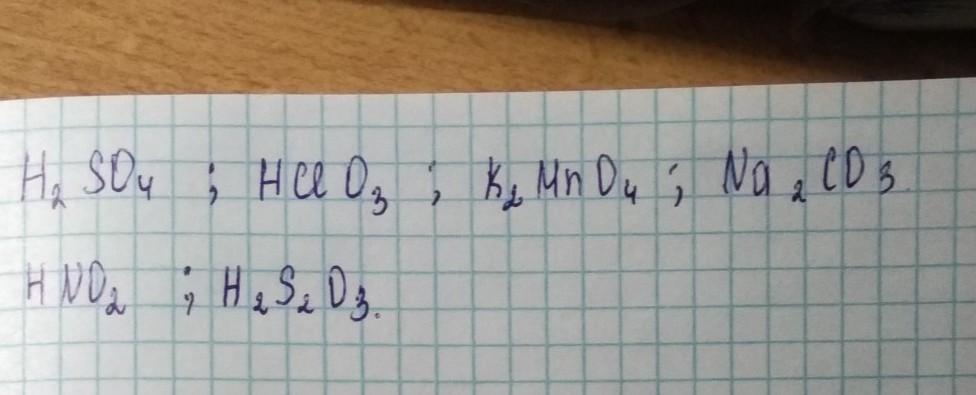 H₂SO₄ ; HClO₃ ; K₂MnO₄ ; Na₂CO₃.
HNO₂ ; H₂S₂O₃.